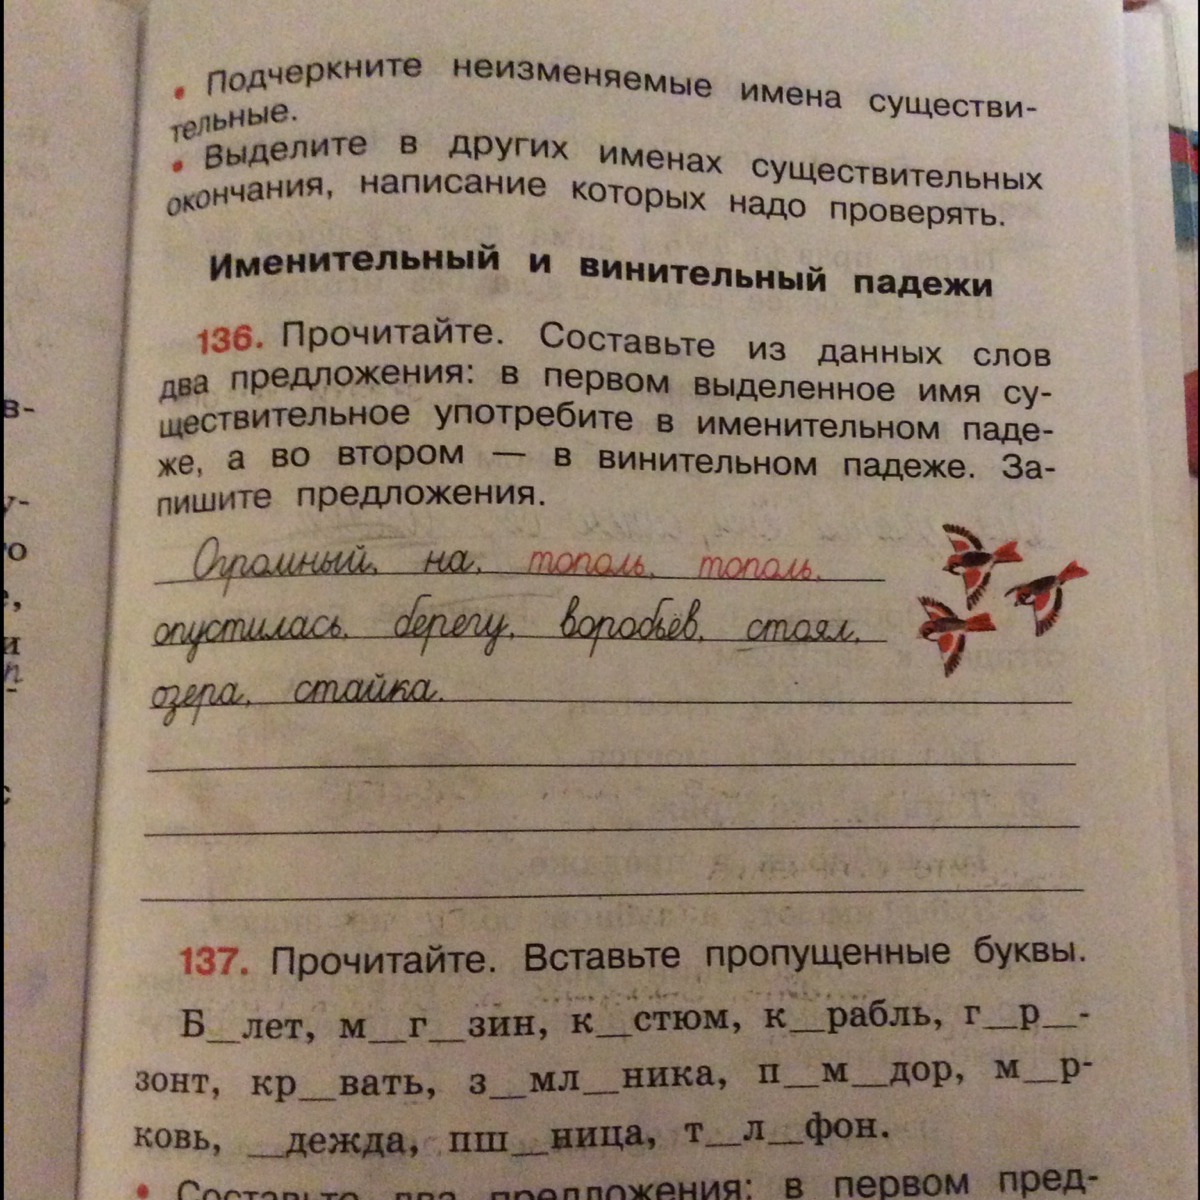 • Подчеркните неизменяемые имена существи-
тельные.
• Выделите в других именах существительных
окончания, написание которых надо проверять.
Именительный и винительный падежи
136. Прочитайте. Составьте из данных слов
два предложения: в первом выделенное имя су-
ществительное употребите в именительном паде-
же, а во втором — в винительном падеже. За-
пишите предложения.
Огромный, на, тополь, тополь,
опустилась, берегу, воробьёв, стоял,
озера, стайка.
137. Прочитайте. Вставьте пропущенные буквы.
Б__лет, м__г__зин, к__стюм, к__рабль, г__р__-
зонт, кр__вать, з__мл__ника, п__м__дор, м__р-
ковь, __дежда, пш__ница, т__л__фон.
• Составьте два предложения: в первом пред-